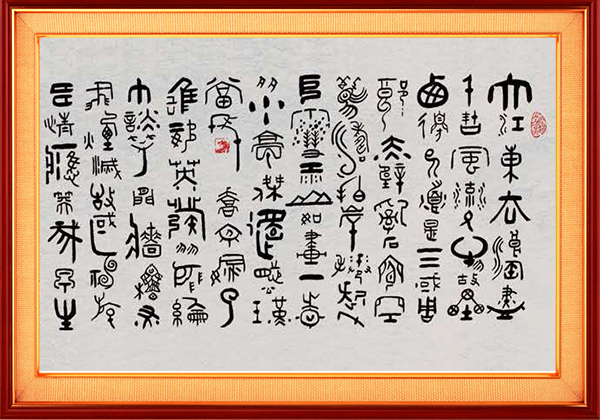 大江東去浪淘盡
千古風流人物故壘
西邊人道是三國周
郎赤壁亂石穿空
驚濤拍岸
雪江山如畫一時
多少豪傑遙想公瑾
當年
喬初嫁了
雄姿英發羽扇綸
巾談笑間檣櫓灰
飛煙滅故國神遊
情應笑我早生